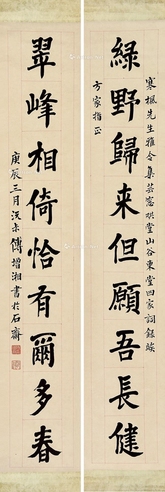 綠野歸来但願吾長健
寒楓先生雅令集芸窗珙堂山谷東堂四家詞録蘄
方家指正
翠峰相倚恰有爾多春
庚辰三月沅未傅增湘書於石齋